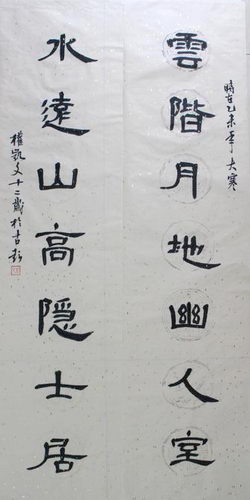 雲階月地幽人室
時在乙未年大寒
水遠山高隐士居
權凱文十二歲於古彭